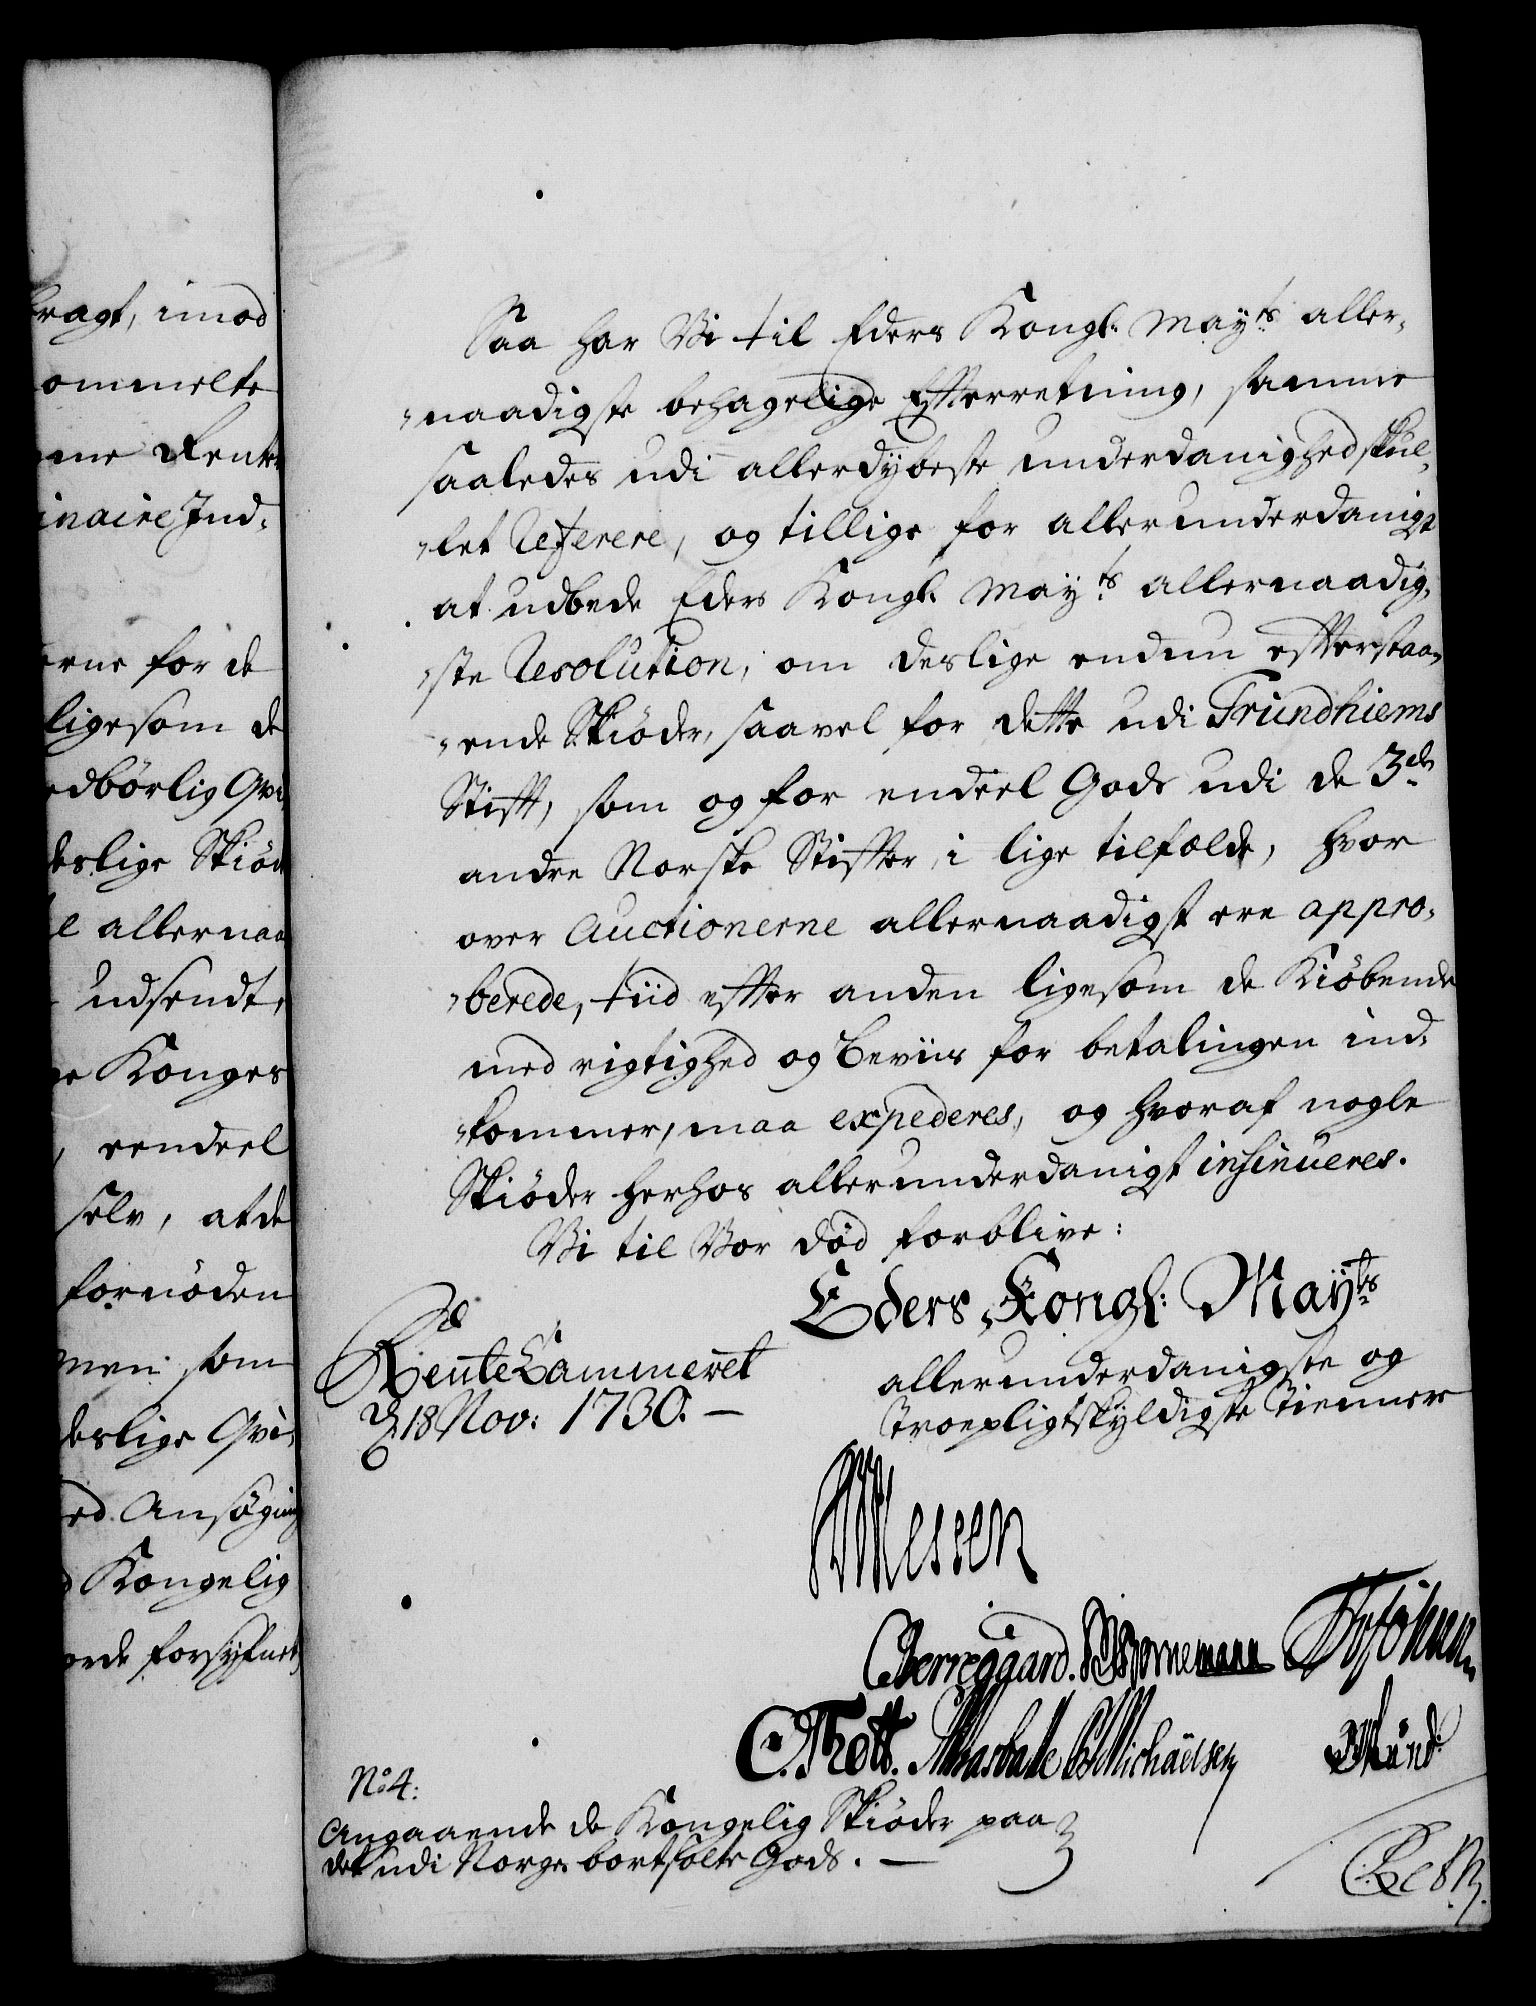 bragt, imod
ommelte
me Rente
inaire Ind-
erne for de
ligesom de
edbörlig Qvi-
deslige Skiöd
allernaa
udsendt,
Konges
eendeel
selv, at de
fornöden
men som
deslige Qvi-
ed Ansögning
Kongelig
orde forsyfnet,
Saa har Vi til Eders Kongl: Mayts aller-
naadigste behagelige Efterretning, samme
saaledes udi allerdybeste underdanighed skul-
let Referere, og tillige for allerunderdanigst
at udbede Eders Kongl: Mayts allernaadig-
ste Resolution, om deslige endnu efterstaa-
ende Skiöder, saavel for dette udi Trundhiems
Stift, som og for endeel Gods udi de 3de
andre Norske Stifter, i lige tilfælde, hvor
over Auctionerne allernaadigst ere appro-
berede, tiid efter anden ligesom de Kiöbende
med rigtighed og Beviis for betalingen ind-
kommer, maa expederes, og hvoraf nogle
Skiöder herhos allerunderdanigst insinueres.
Vi til Vor död forblive:
Eders Kongl: Mayts
allerunderdanigste og
Troepligtskyldigste Tiennere
RenteCammeret
d 18 Nov: 1730. —
Messen
CBerreggard. Bornemann
C. Thott. Michaelsen
No 4:
Angaaende de Kongelig Skiöder paa
det udi Norge bortsolte Gods. —